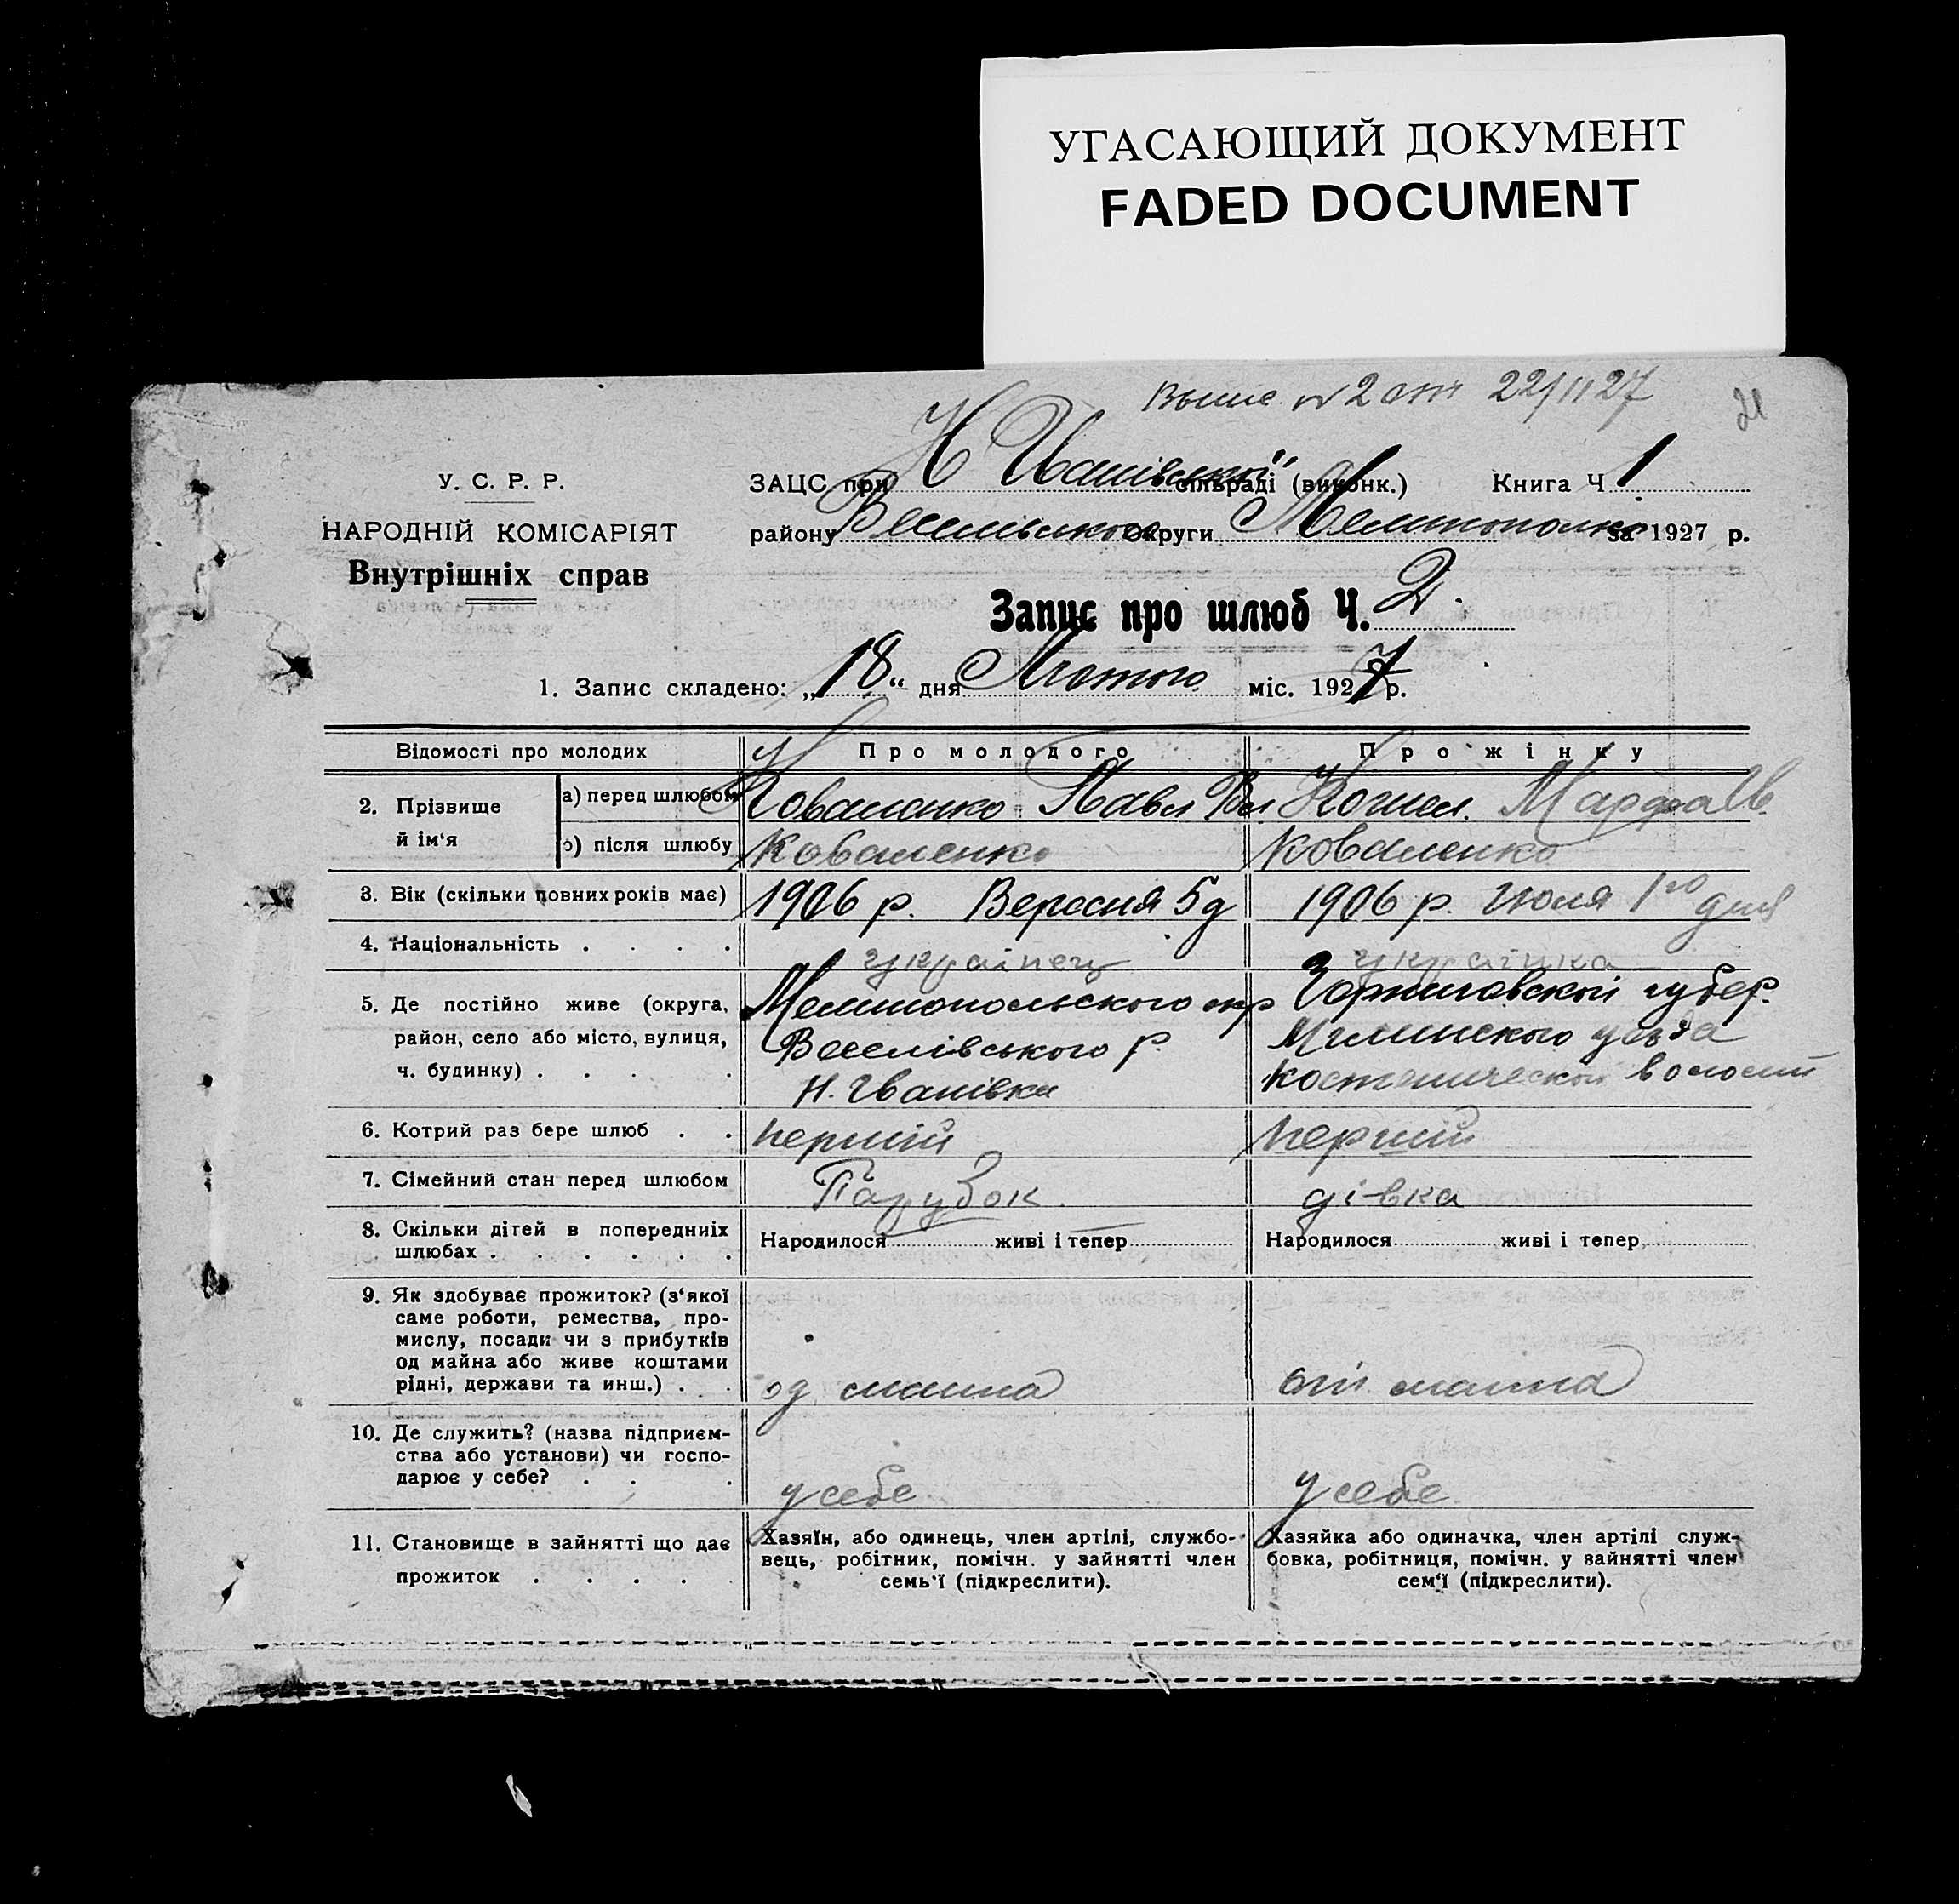 УГАСАЮЩИЙ ДОКУМЕНТ
FADED DOCUMENT
N 2 от 22/II 27
21
У. С. Р. Р.
НАРОДНІЙ КОМІСАРІЯТ
Внутрішніх справ
ЗАЦС при Н Иванівської сільраді (виконк.) Книга Ч 1
району Веселівського округи Мелитопольс за 1927 р.
Запис про шлюб Ч. 2.
1. Запис складено: „18“ дня Лютого міс. 1927 р.
Відомості про молодих Про молодого Про жінку
2. Прізвище й ім‘я
а) перед шлюбом Коваленко Павл Кошел. Марфа Ив.
б) після шлюбу Коваленко Коваленко
3. Вік (скільки повних років має) 1906 р. Вересня 5 д 1906 р. Июля 1го дня
4. Національність українец українка
5. Де постійно живе (округа, Мелитопольського окр Чорниговской губер.
район, село або місто, вулиця, Веселівського р. Мглинского уезда
ч. будинку) Н. Иванівка Костеничской волости
6. Котрий раз бере шлюб перший перший
7. Сімейний стан перед шлюбом Парубок. дівка
8. Скільки дітей в попередниіх шлюбах Народилося живі і тепер Народилося живі і тепер
9. Як здобуває прожиток? (з‘якої
саме роботи, ремества, про-
мислу, посади чи з прибутків
од майна або живе коштами
рідні, держави та инш.) од майна от майна
10. Де служить? (назва підприєм-
ства або установи) чи госпо-
дарює у себе? у себе у себе
11. Становище в зайнятті що дає
прожиток
Хазяїн, або одинець, член артілі, службо-
вець, робітник, помічн. у зайнятті член
семь‘ї (підкреслити).
Хазяйка або одиначка, член артілі служ-
бовка, робітниця, помічн. у зайнятті член
сем‘ї (підкреслити).